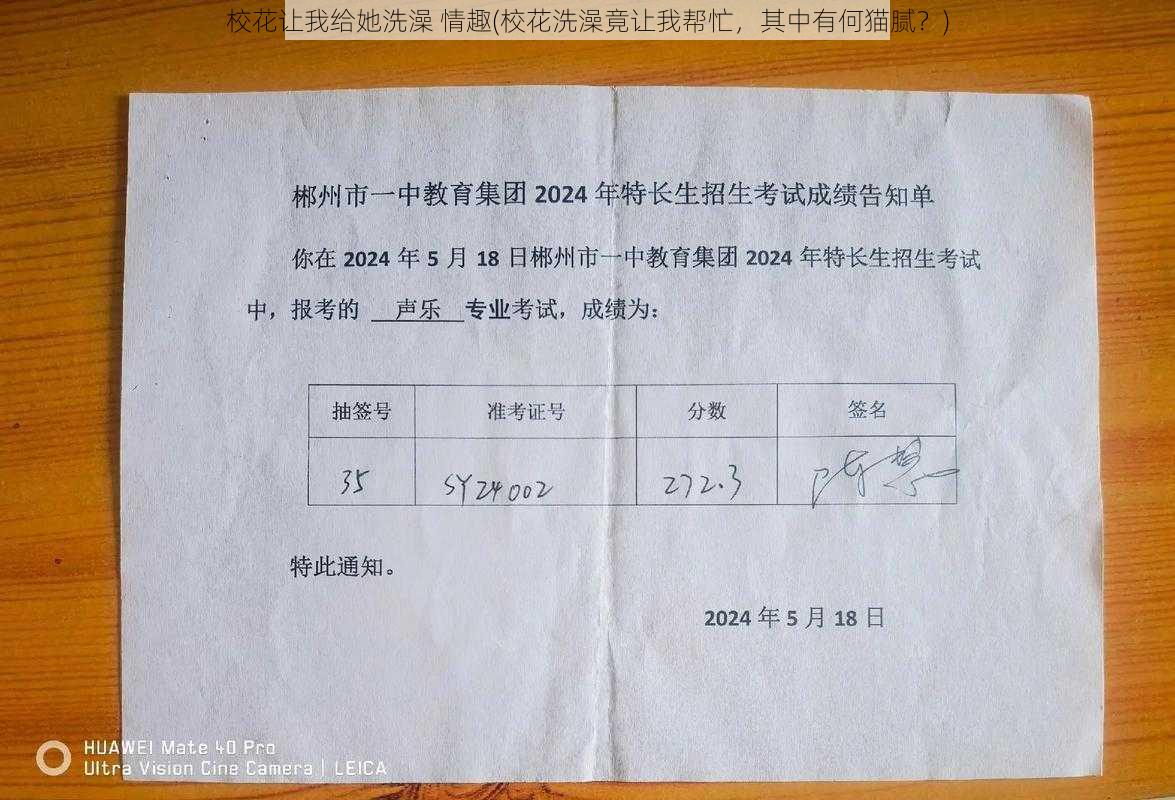 校花让我给她洗澡 情趣(校花洗澡竟让我帮忙，其中有何猫腻？)
郴州市一中教育集团 2024 年特长生招生考试成绩告知单
你在 2024 年 5 月 18 日郴州市一中教育集团 2024 年特长生招生考试
中，报考的 声乐 专业考试，成绩为：
抽签号 准考证号 分数 签名
35 SY24002 272.3
特此通知。
2024 年 5 月 18 日
HUAWEI Mate 40 Pro
Ultra Vision Cine Camera | LEICA